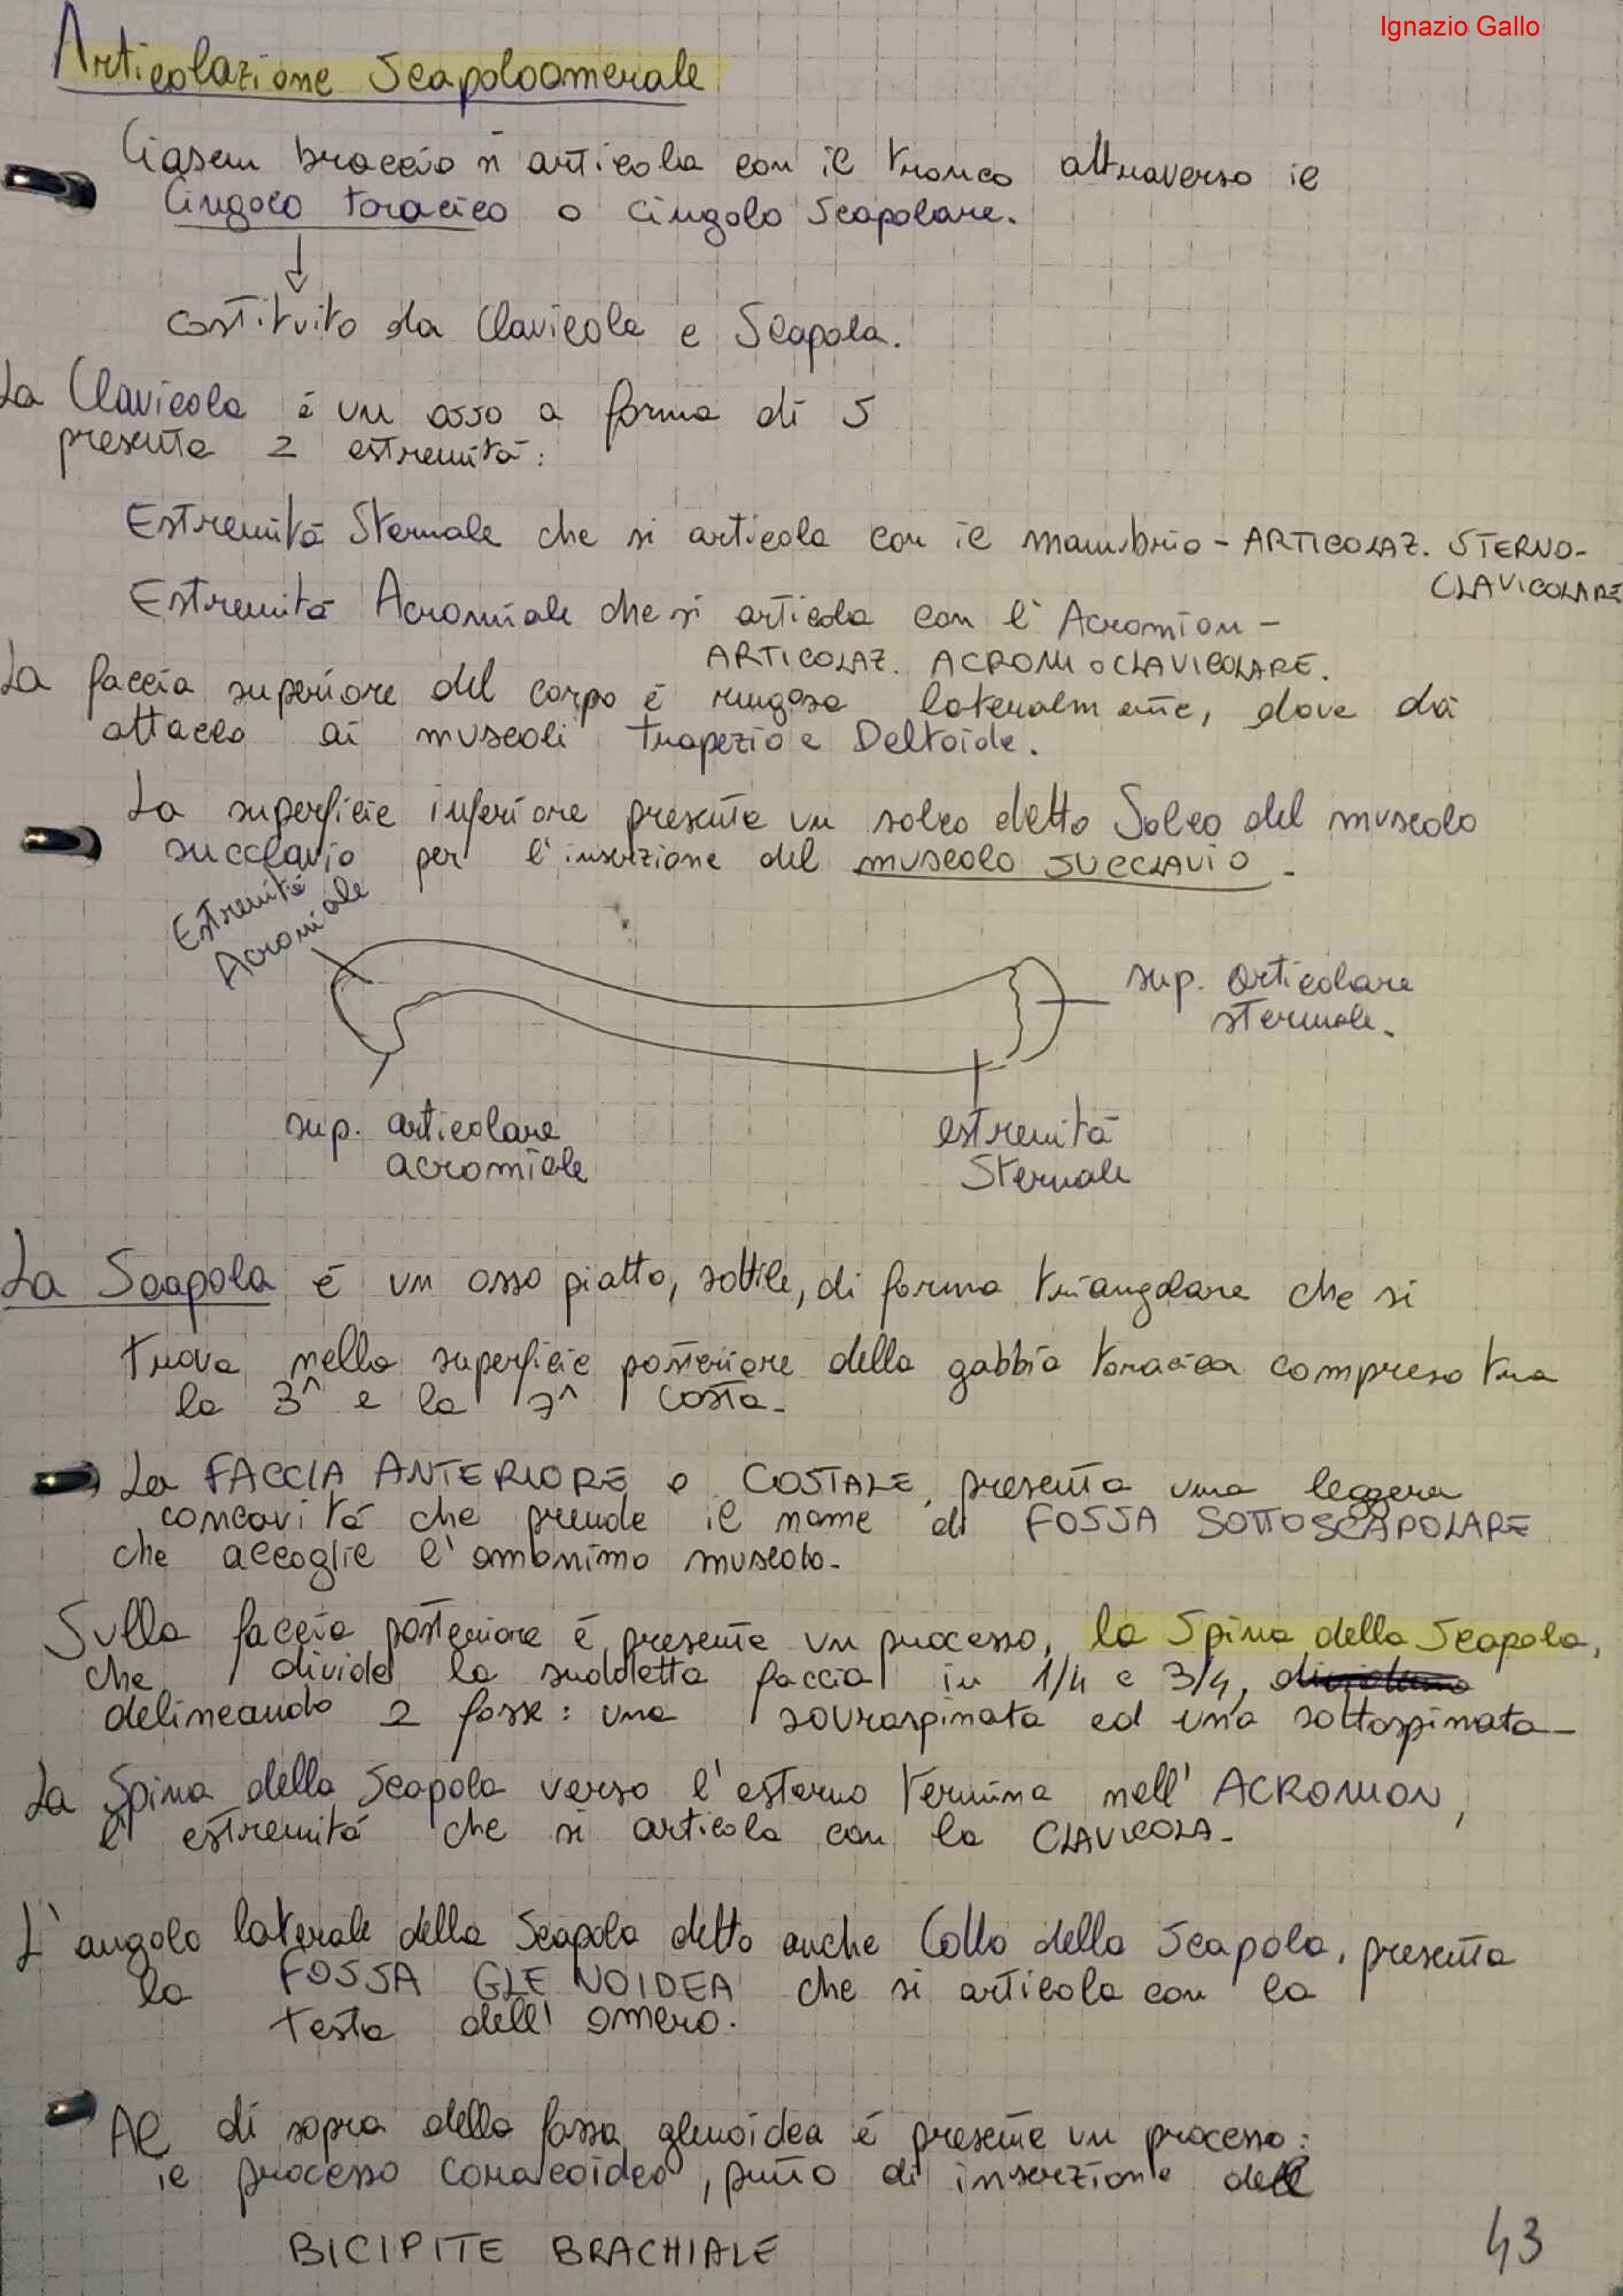 Ignazio Gallo
Articolazione Scapoloomerale
Ciascun braccio si articola con il tronco attraverso il
Cingolo toracico o cingolo Scapolare.
costituito da Clavicola e Scapola.
La Clavicola è un osso a forma di S
presenta 2 estremità:
Estremità Sternale che si articola con il manubrio - ARTICOLAZ. STERNO-
CLAVICOLARE
Estremità Acromiale che si articola con l'Acromion -
ARTICOLAZ. ACROMIOCLAVICOLARE.
La faccia superiore del corpo è rugosa lateralmente, dove dà
attacco ai muscoli trapezio e Deltoide.
La superficie inferiore presenta un solco detto Solco del muscolo
succlavio per l'inserzione del muscolo SUCCLAVIO.
Estremità
Acromiale
sup. articolare
sternale.
sup. articolare
acromiale
estremità
Sternale
La Scapola è un osso piatto, sottile, di forma triangolare che si
trova nella superficie posteriore della gabbia toracica compreso tra
la 3^ e la 7^ costa.
La FACCIA ANTERIORE o COSTALE, presenta una leggera
concavità che prende il nome di FOSSA SOTTOSCAPOLARE
che accoglie l'omonimo muscolo.
Sulla faccia posteriore è presente un processo, la Spina della Scapola,
che divide la suddetta faccia in 1/4 e 3/4,
delineando 2 fosse: una sovraspinata ed una sottospinata
La Spina della Scapola verso l'esterno termina nell'ACROMION,
l'estremità che si articola con la CLAVICOLA.
L'angolo laterale della Scapola detto anche Collo della Scapola, presenta
la FOSSA GLENOIDEA che si articola con la
testa dell'omero.
Al di sopra della fossa glenoidea è presente un processo:
il processo coracoideo, punto di inserzione del
BICIPITE BRACHIALE
43